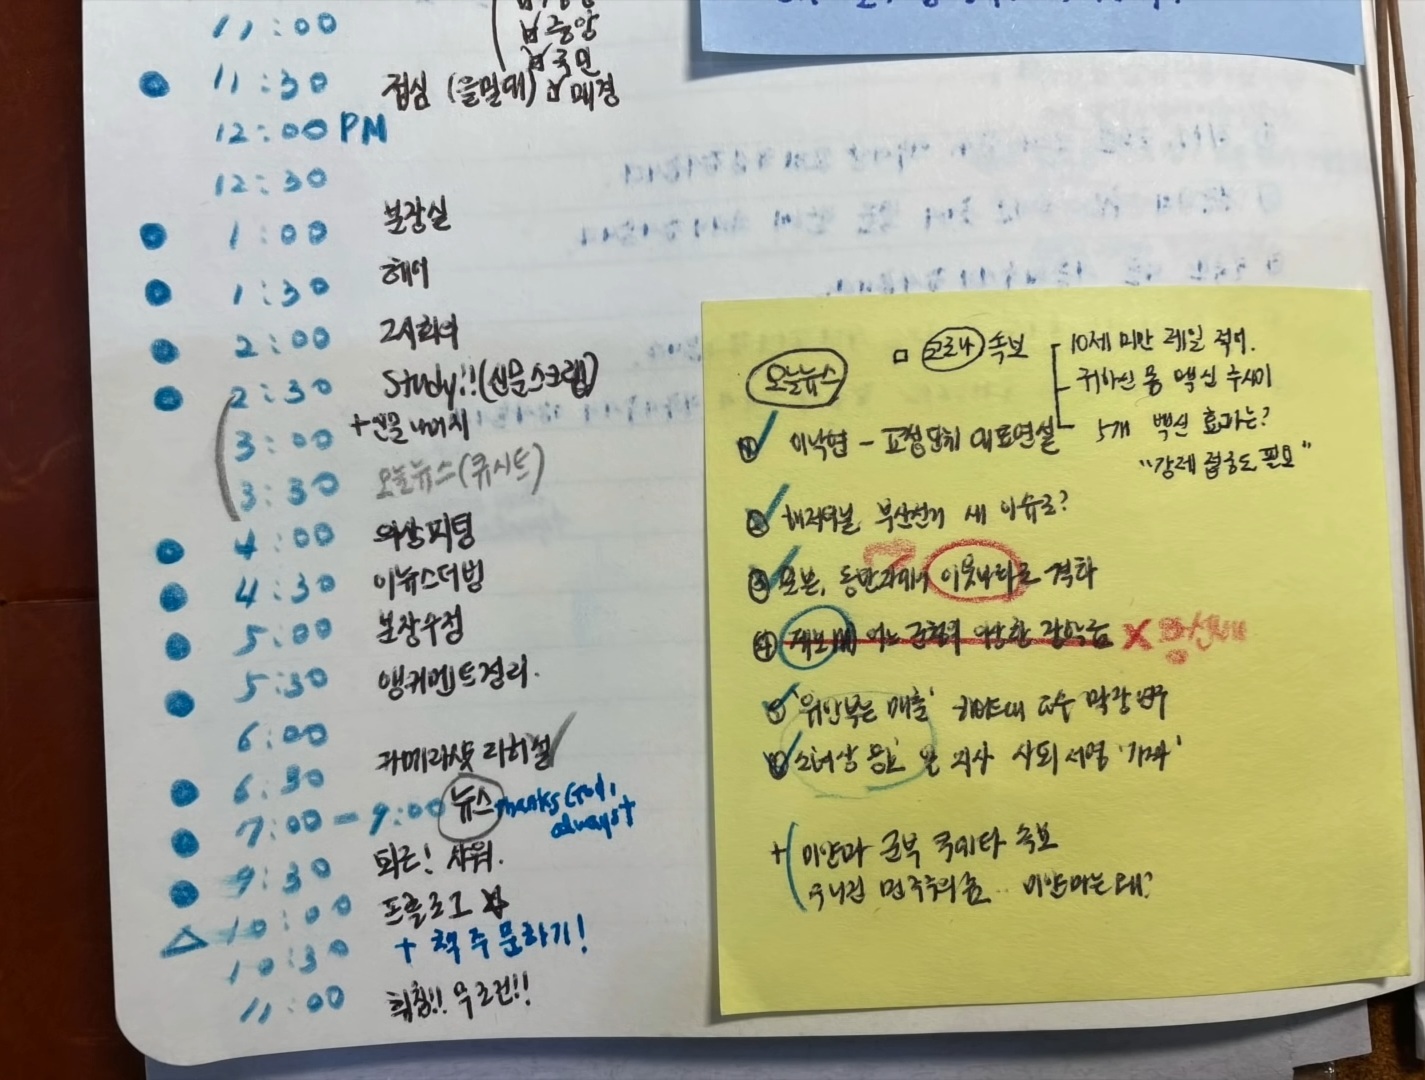 11:00
중앙
국민
11:30 점심 (을밀대) 매경
12:00 PM
12:30
1:00 분장실
1:30 헤어
2:00 2시회의
2:30 Study!! (신문스크랩)
3:00 + 신문 나머지
3:30 오늘뉴스(큐시트)
4:00 의상피팅
4:30 이뉴스더빙
5:00 분장수정
5:30 앵커멘트정리.
6:00
6:30 카메라샷 리허설
7:00 - 9:00 뉴스 thanks God,
always
9:30 퇴근! 샤워.
10:00 프롤로그
10:30 + 책 주문하기!
11:00 취침!! 무조건!!
오늘뉴스
코로나 속보
10세 미만 제일 적어.
맥신 주사이
5개 백신 효과는?
"강제 접종도 필요"
① 이낙연 - 교섭단체 대표연설
② 해저터널, 부산선거 새 이슈로?
③ 모본, 동반자에서 이웃나라로 격하
④ 제보 어느 군청의 이상한 장학금 X
⑤ '위안부는 매춘' 하버드대 교수 막장
⑥ 소녀상 일 지사 사퇴 서명 '가짜'
+ 미얀마 군부 쿠데타 속보
미얀마는 왜?